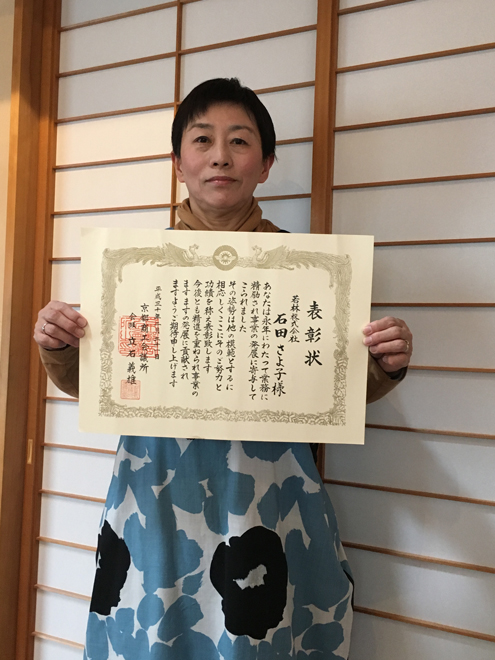 表彰状
若林株式会社
石田さと子様
あなたは永年にわたって業務に
精励され事業の発展に寄与して
こられました
その姿勢は他の模範とするに
相応しくここにそのご努力と
功績を称え表彰致します
今後とも精進を重ねられ事業の
ますますの発展に貢献され
ますようご期待申し上げます
平成三十年
京都商工会議所
会頭 立石義雄